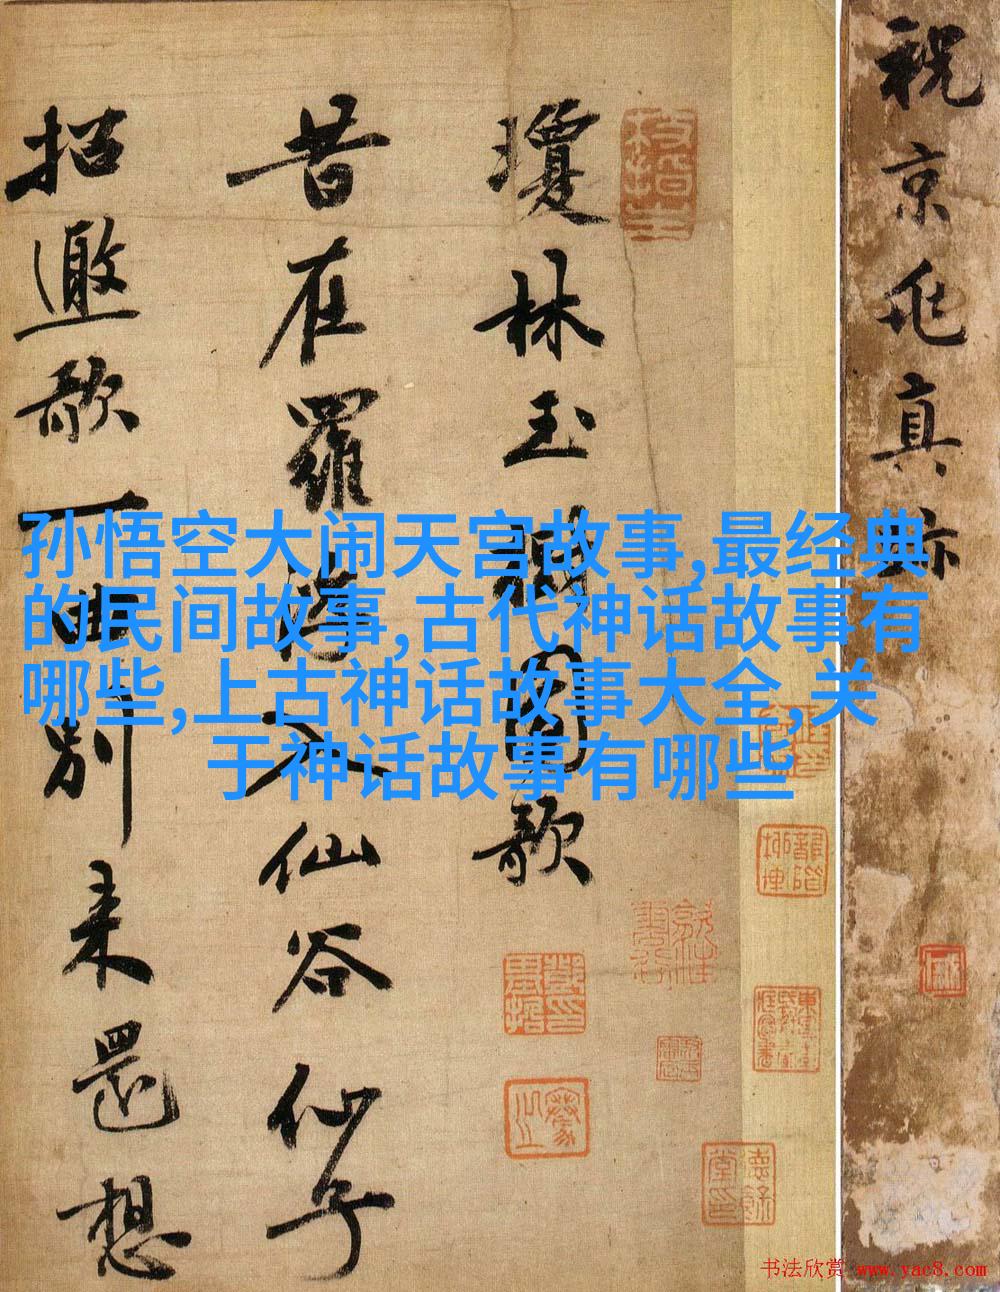 祝京兆真
瓊林玉樹圖歌
昔在羅浮入仙谷仙子
招邀歌一曲別来還想
孙悟空大闹天宫故事,最经典
的民间故事,古代神话故事有
哪些,上古神话故事大全,关
于神话故事有哪些
书法欣赏 www.yac8.com